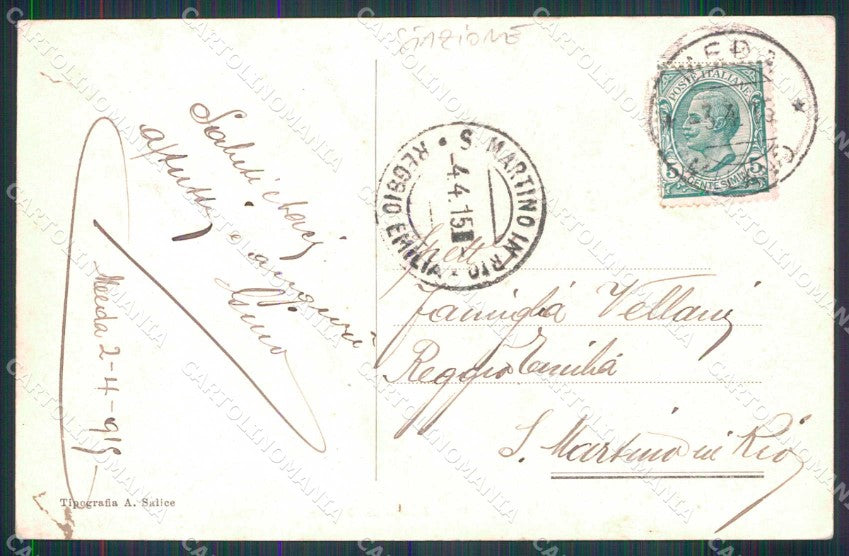 STAZIONE
Saluti e baci
a tutti
e auguri
Gino
Meda 2-4-915
Tipografia A. Salice
S. MARTINO IN RIO
REGGIO EMILIA
-4.4.15
MEDA
POSTE ITALIANE
5 CENTESIMI 5
Spett
famiglia Vellani
Reggio Emilia
S. Martino in Rio
CARTOLINOMANIA